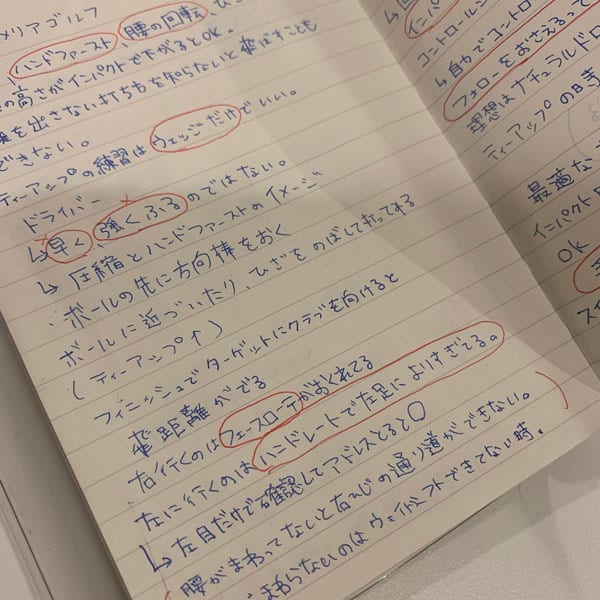 メリアゴルフ
ハンドファースト、腰の回転、ひ
の高さがインパクトで下がるとOK.
を出さない打ち方を知らないと飛ばすことも
できない。
ティーアップの練習はウェッジだけでいい。
ドライバー
↳早く強くふるのではない。
↳圧縮とハンドファーストのイメージ
・ボールの先に方向棒をおく
ボールに近づいたり、ひざをのばして打ってみる
(ティーアップ↑)
フィニッシュでターゲットにクラブを向けると
飛距離がでる
右行くのはフェースローテがおくれてる
左に行くのはハンドレートで左足によりすぎてる。
↳左目だけで確認してアドレスとると○
(腰がまわってないと右ひじの通り道ができない。)
まわらないのはウェイトシフトできてない時。
インパ
コントロール
↳自力でコントロ
フォローをおさえるって
理想はナチュラルドロ
ティーアップの時
最適な
インパクト
OK